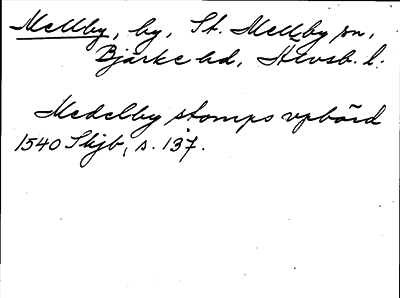 Mellby, by, St. Mellby sn,
Bjärke hd, Älvsb. l.
Medelby stomps vpbörd
1540 Skjb, s. 137.